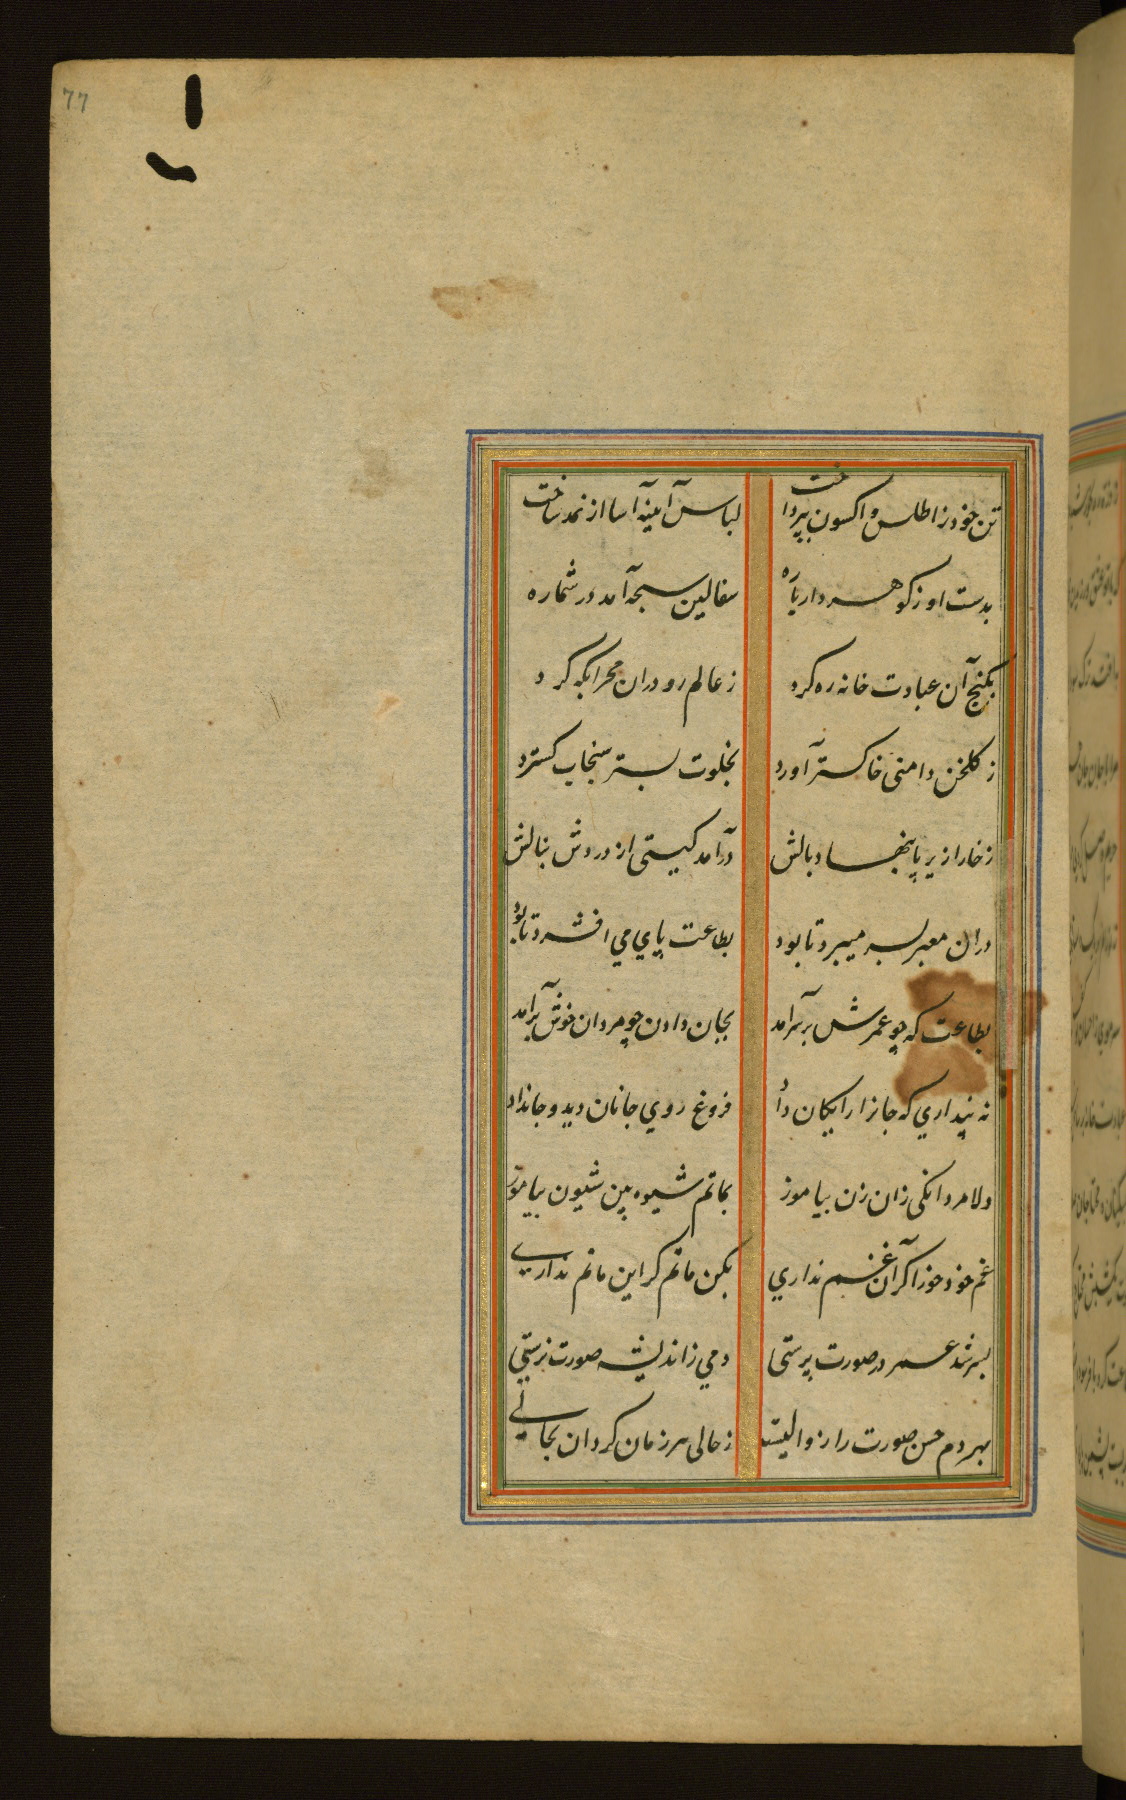 77
تن خود ز اطلس و اکسون بپرداخت لباس آینه آسا از نمد ساخت
بدست او ز گوهردار یاره سفالین سبحه آمد در شماره
بکنج آن عبادت خانه ره کرد ز عالم رو دران محرابکه کرد
ز کلخن دامنی خاکستر آورد بخلوت بستر سنجاب کسترد
ز خارا زیر پا بنهاد بالش درآمد کیتی از دردش بنالش
دران معبر بسر میبرد تا بود بطاعت پای می افشرد تا بود
بطاعت که چو عمرش برسرآمد بجان دادن چو مردان خوش برآمد
نه پنداری که جانرا رایکان داد فروغ روی جانان دید و جانداد
دلا مردانکی زان زن بیاموز بماتم شیوه بین شیون بیاموز
غم خود خور اکر آن غم نداری بکن ماتم کر این ماتم نداری
بسر شد عمر در صورت پرستی دمی ز اندیشه صورت نرستی
بهر دم حسن صورت را زوالیست ز حالی هر زمان کردان بحالی